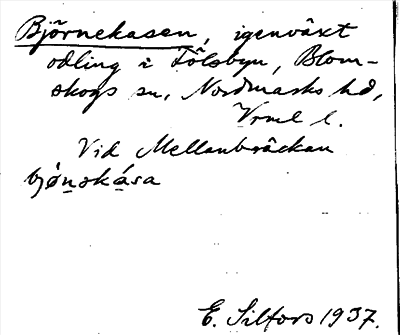 Björnekasen, igenväxt
odling i Fölsbyn, Blom-
skogs sn, Nordmarks hd,
Vrml l.
Vid Mellanbräckan
bjö́nskása
E. Silfors 1937.